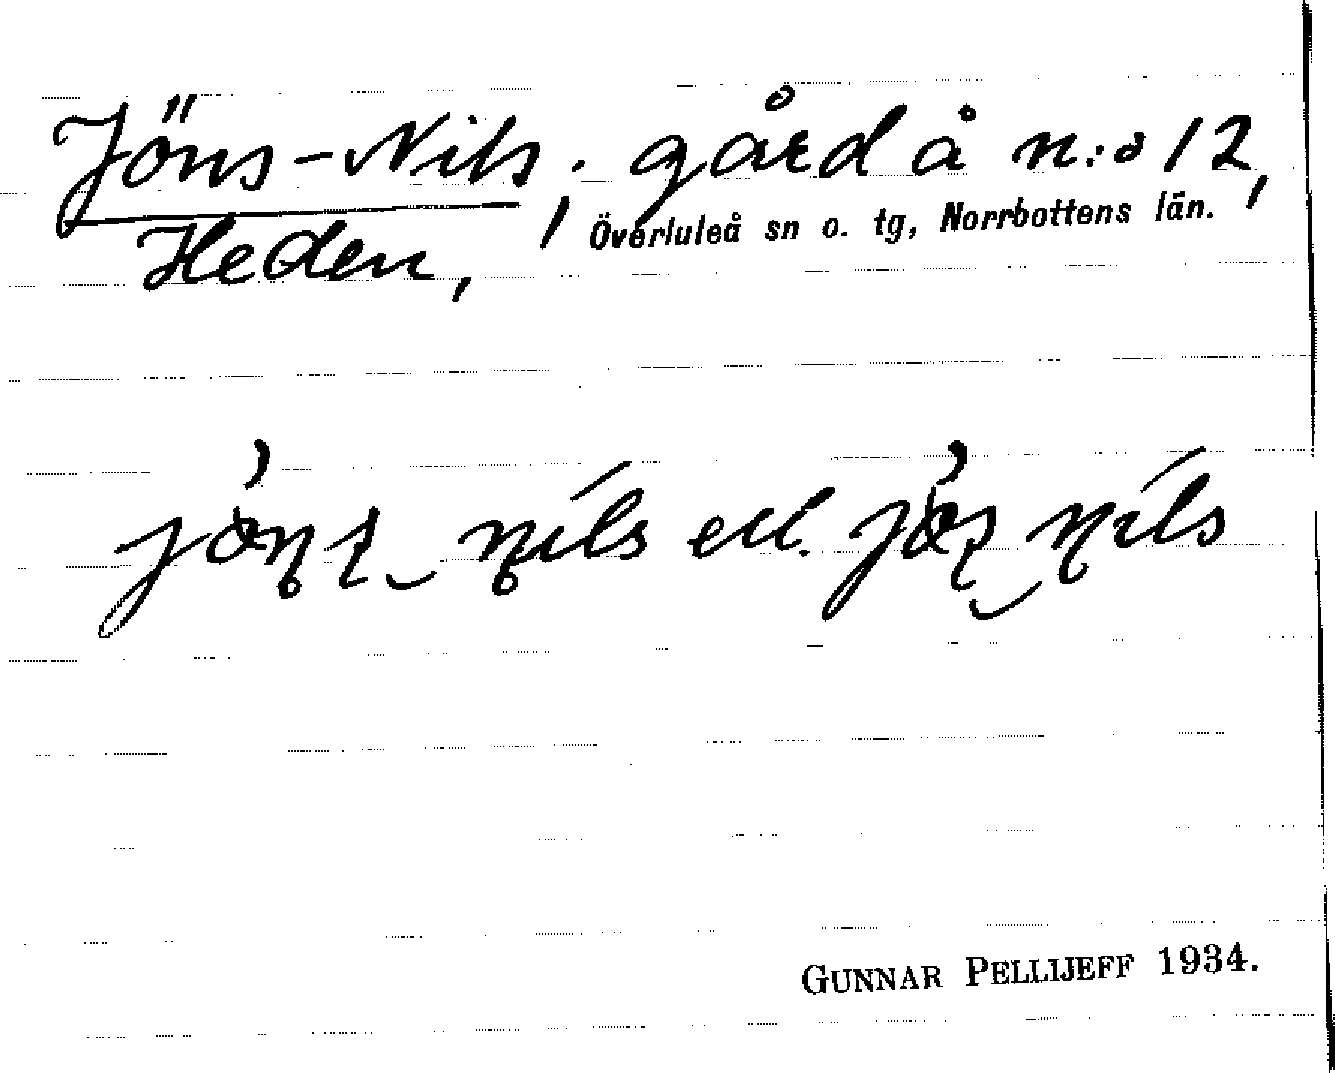 Jöns-Nils, gård å n:o 12,
Heden, Överluleå sn o. tg, Norrbottens län.
jöns nils ell. jös nils
GUNNAR PELLIJEFF 1934.